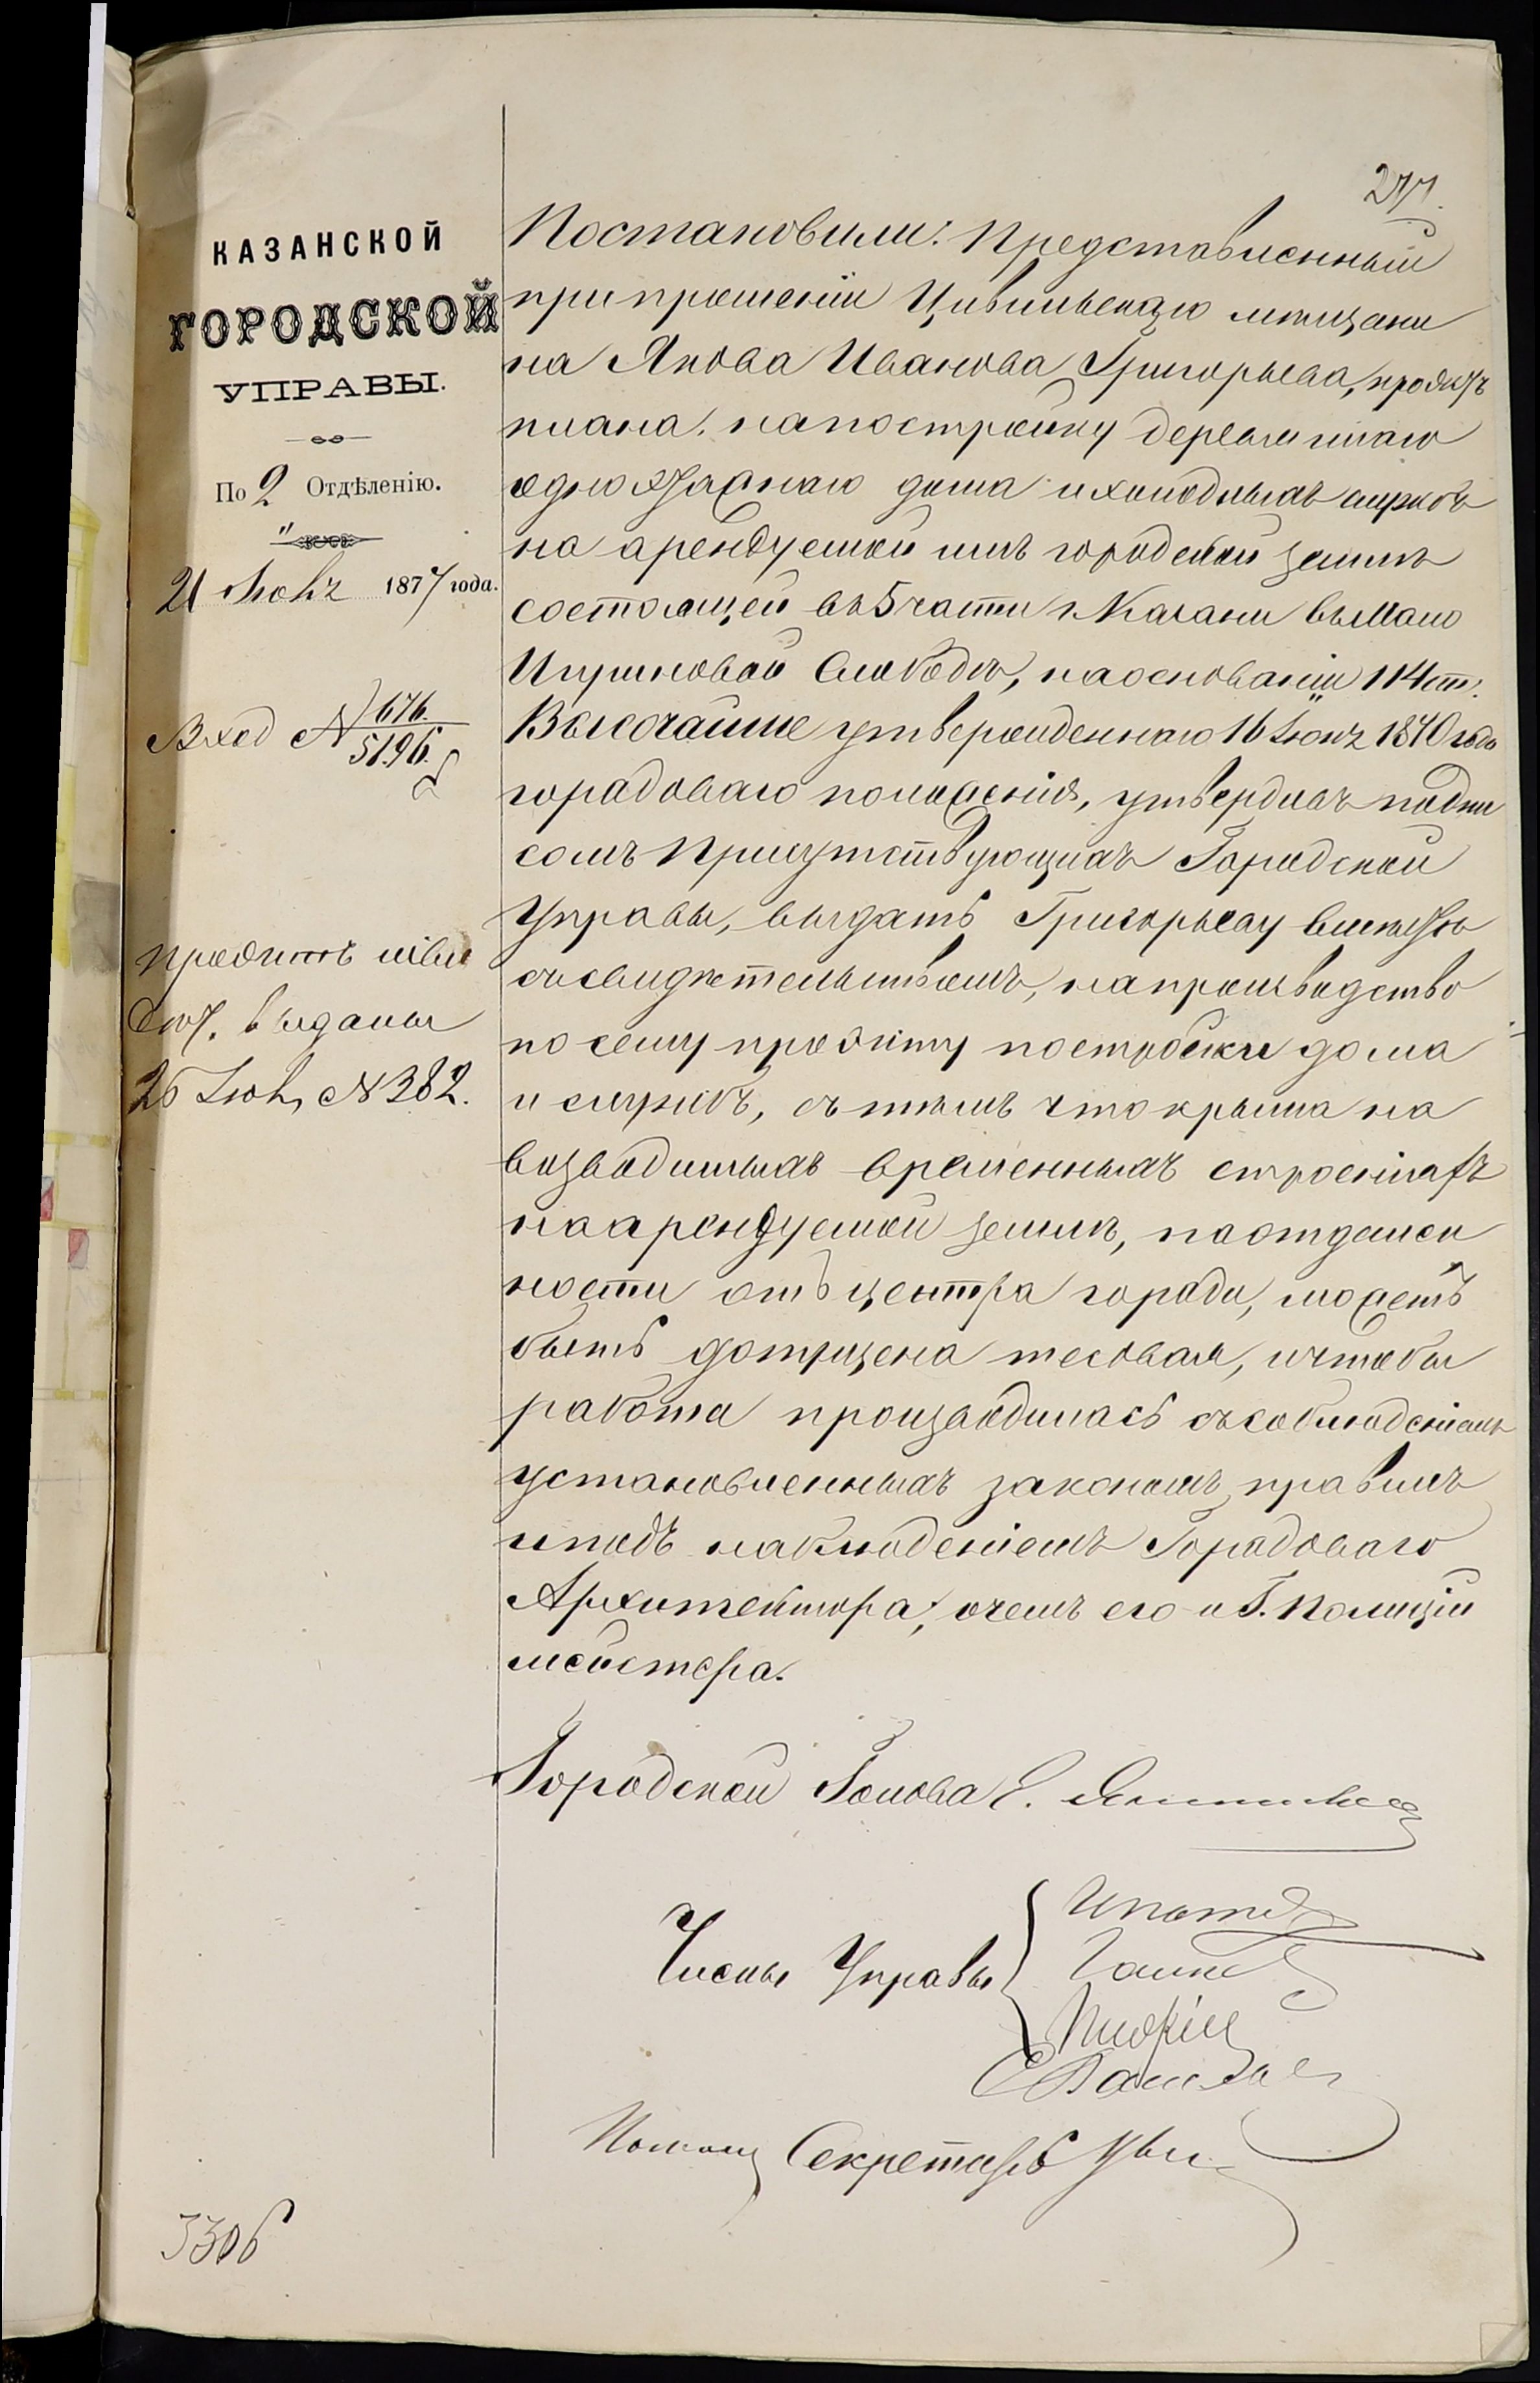 277.
КАЗАНСКОЙ
ГОРОДСКОЙ
УПРАВЫ.
По 2 Отдѣленію.
21 Іюля 1877 года.
Вход № 676.
5196.
проэктъ
выданы
26 Іюл, № 382.
Постановили: Представленный
при прошеніи Цивильскаго мѣщани
на Якова Иванова Григорьева, проэктъ
плана. на постройку деревяннаго
одно этажнаго дома и холодныхъ службъ
на арендуемой имъ городской землѣ
состоящей въ 5 части г. Казани въ Мало
Игумновой Слободѣ, на основаніи 114 ст.
Высочайше утвержденнаго 16 Іюня 1870 года
городоваго положенія, утвердивъ подпи
сомъ Присутствующихъ Городской
Управы, выдать Григорьеву вместѣ
съ свидѣтельствомъ, на производство
по сему проэкту постройки дома
и службъ, съ тѣмъ что крыша на
возводимыхъ временныхъ строеніяхъ
на арендуемой землѣ, по отдален
ности отъ центра города, можетъ
быть допущена тесовая, и чтобы
работа производилась съ соблюденіемъ
установленныхъ закономъ правилъ
и подъ наблюденіемъ Городоваго
Архитектора, о чемъ его и Г. Полицій
мейстера.
Городской Голова
Члены Управы
Секретарь
3306